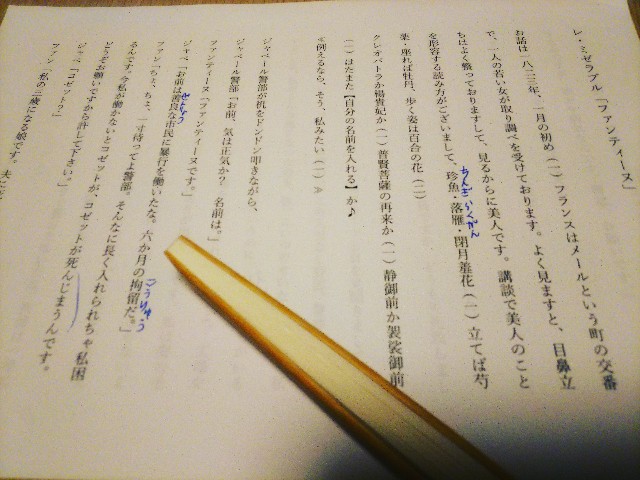 レ・ミゼラブル「ファンティーヌ」
お話は一八二三年、一月の初め(一)フランスはメールという町の交番
で、一人の若い女が取り調べを受けております。よく見ますと、目鼻立
ちはよく整っておりますして、見るからに美人です。講談で美人のこと
を形容する読み方がございまして、珍魚・落雁・閉月羞花(一)立てば芍
ちんぎょらくがん
薬・座れば牡丹、歩く姿は百合の花(二)
クレオパトラか楊貴妃か(一)普賢菩薩の再来か(一)静御前か袈裟御前
(一)はたまた【自分の名前を入れる】か♪
≪例えるなら、そう、私みたい(一)≫
ジャベール警部が机をドンドン叩きながら、
ジャベール警部「お前、気は正気か? 名前は。」
ファンティーヌ「ファンティーヌです。」
ジャベ「お前は善良な市民に暴行を働いたな。六か月の拘留だ。」
ぜんりょう
こうりゅう
ファン「ちょ、ちょ、一寸待ってよ警部。そんなに長く入れられちゃ私困
るんです。今私が働かないとコゼットが、コゼットが死んじまうんです。
どうぞお願いですから許して下さい。」
ジャベ「コゼット?」
ファン「私の二歳になる娘です。夫に